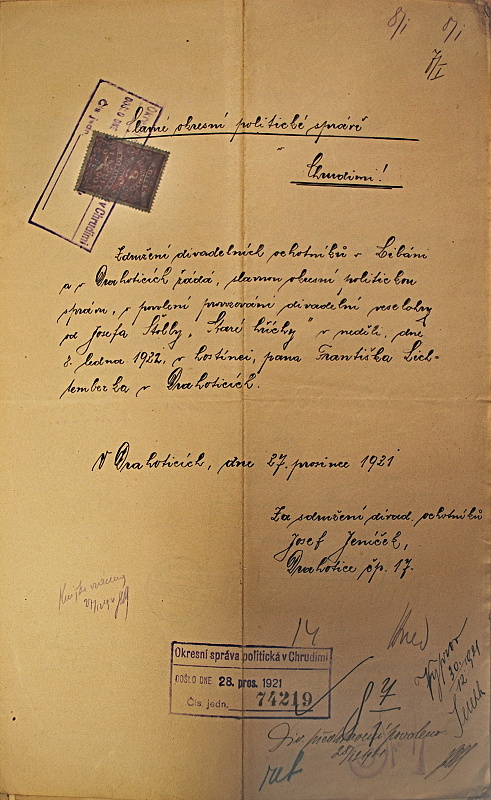 8/I 8/I
7/I
Slavné okresní politické správě
v
Chrudimi!
Združení divadelních ochotníků v Libáni
a v Drahoticích žádá, slavnou okresní politickou
správu, o povolení provozování divadelní veselohry
od Josefa Štolby, "Staré hříchy" v neděli, dne
8. ledna 1922, v hostinci, pana Františka Liech-
temberka v Drahoticích.
V Drahoticích, dne 27. prosince 1921
Za sdružení divad. ochotníků
Josef Jeníček,
Drahotice čp. 17.
Okresní správa politická v Chrudimi
DOŠLO DNE 28. pros. 1921
Čís. jedn. 74219
Výpror
30./12. 1921
Div. představení povoleno